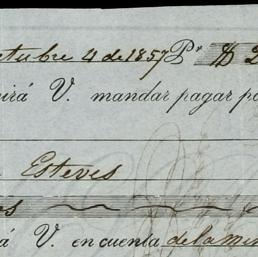 ctubre 4 de 1857 Pr $ 2
irá V. mandar pagar po
Esteves
os
á V. en cuenta de la mis